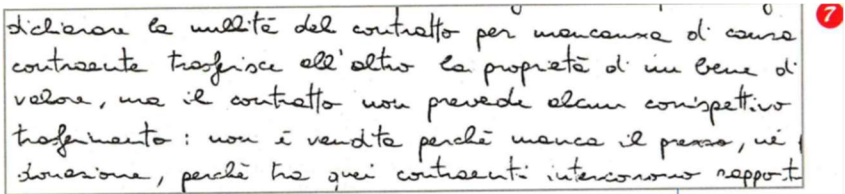 dichiarare la nullità del contratto per mancanza di causa
contraente trasferisce all'altro la proprietà di un bene di
valore, ma il contratto non prevede alcun corrispettivo
trasferimento: non è vendita perchè manca il prezzo, nè
donazione, perchè tra quei contraenti intercorrono rapport
7